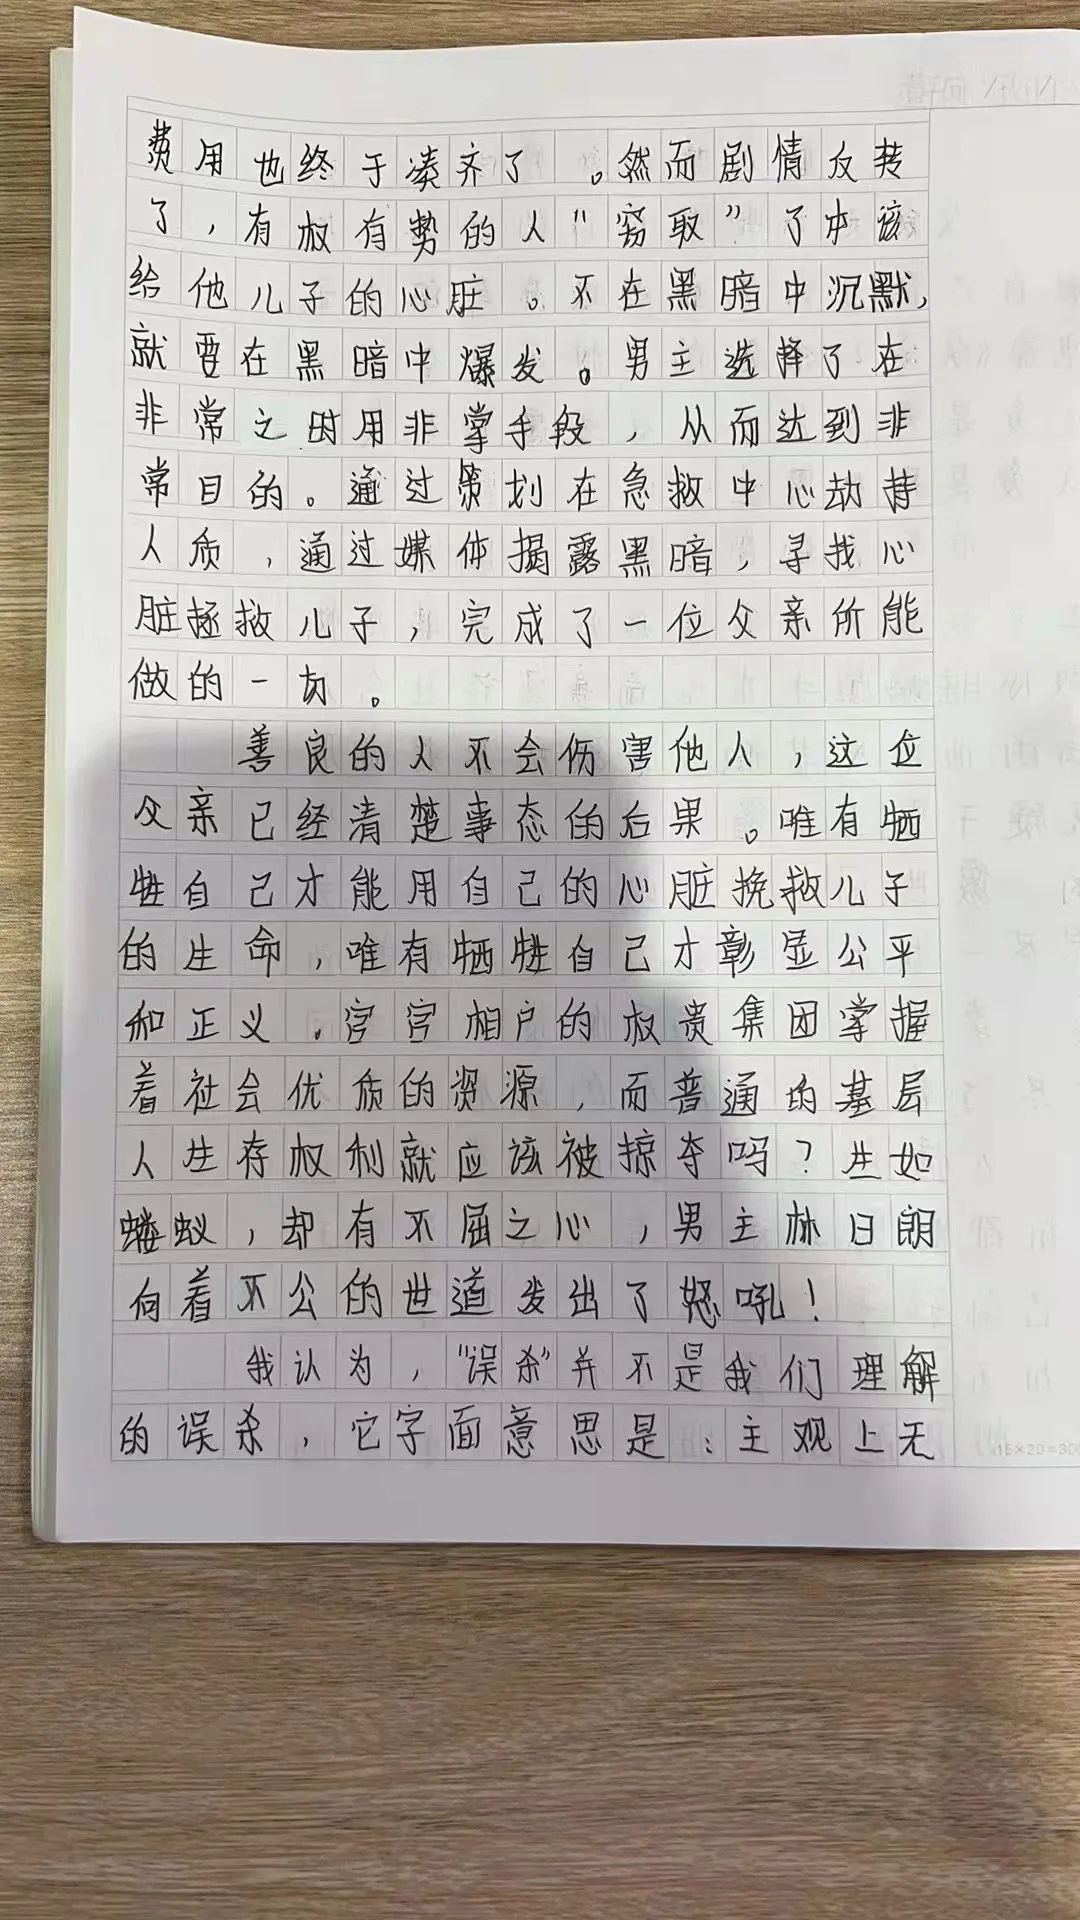 费用也终于凑齐了。然而剧情反转
了，有权有势的人“窃取”了本该
给他儿子的心脏。不在黑暗中沉默，
就要在黑暗中爆发。男主选择了在
非常之时用非掌手段，从而达到非
常目的。通过策划在急救中心劫持
人质，通过媒体揭露黑暗，寻找心
脏拯救儿子，完成了一位父亲所能
做的一切。
善良的人不会伤害他人，这位
父亲已经清楚事态的后果。唯有牺
牲自己才能用自己的心脏挽救儿子
的生命，唯有牺牲自己才彰显公平
和正义。宫宫相户的权贵集团掌握
着社会优质的资源，而普通的基层
人生存权利就应该被掠夺吗？生如
蝼蚁，却有不屈之心，男主林日朗
向着不公的世道发出了怒吼！
我认为，“误杀”并不是我们理解
的误杀，它字面意思是：主观上无
15×20=300